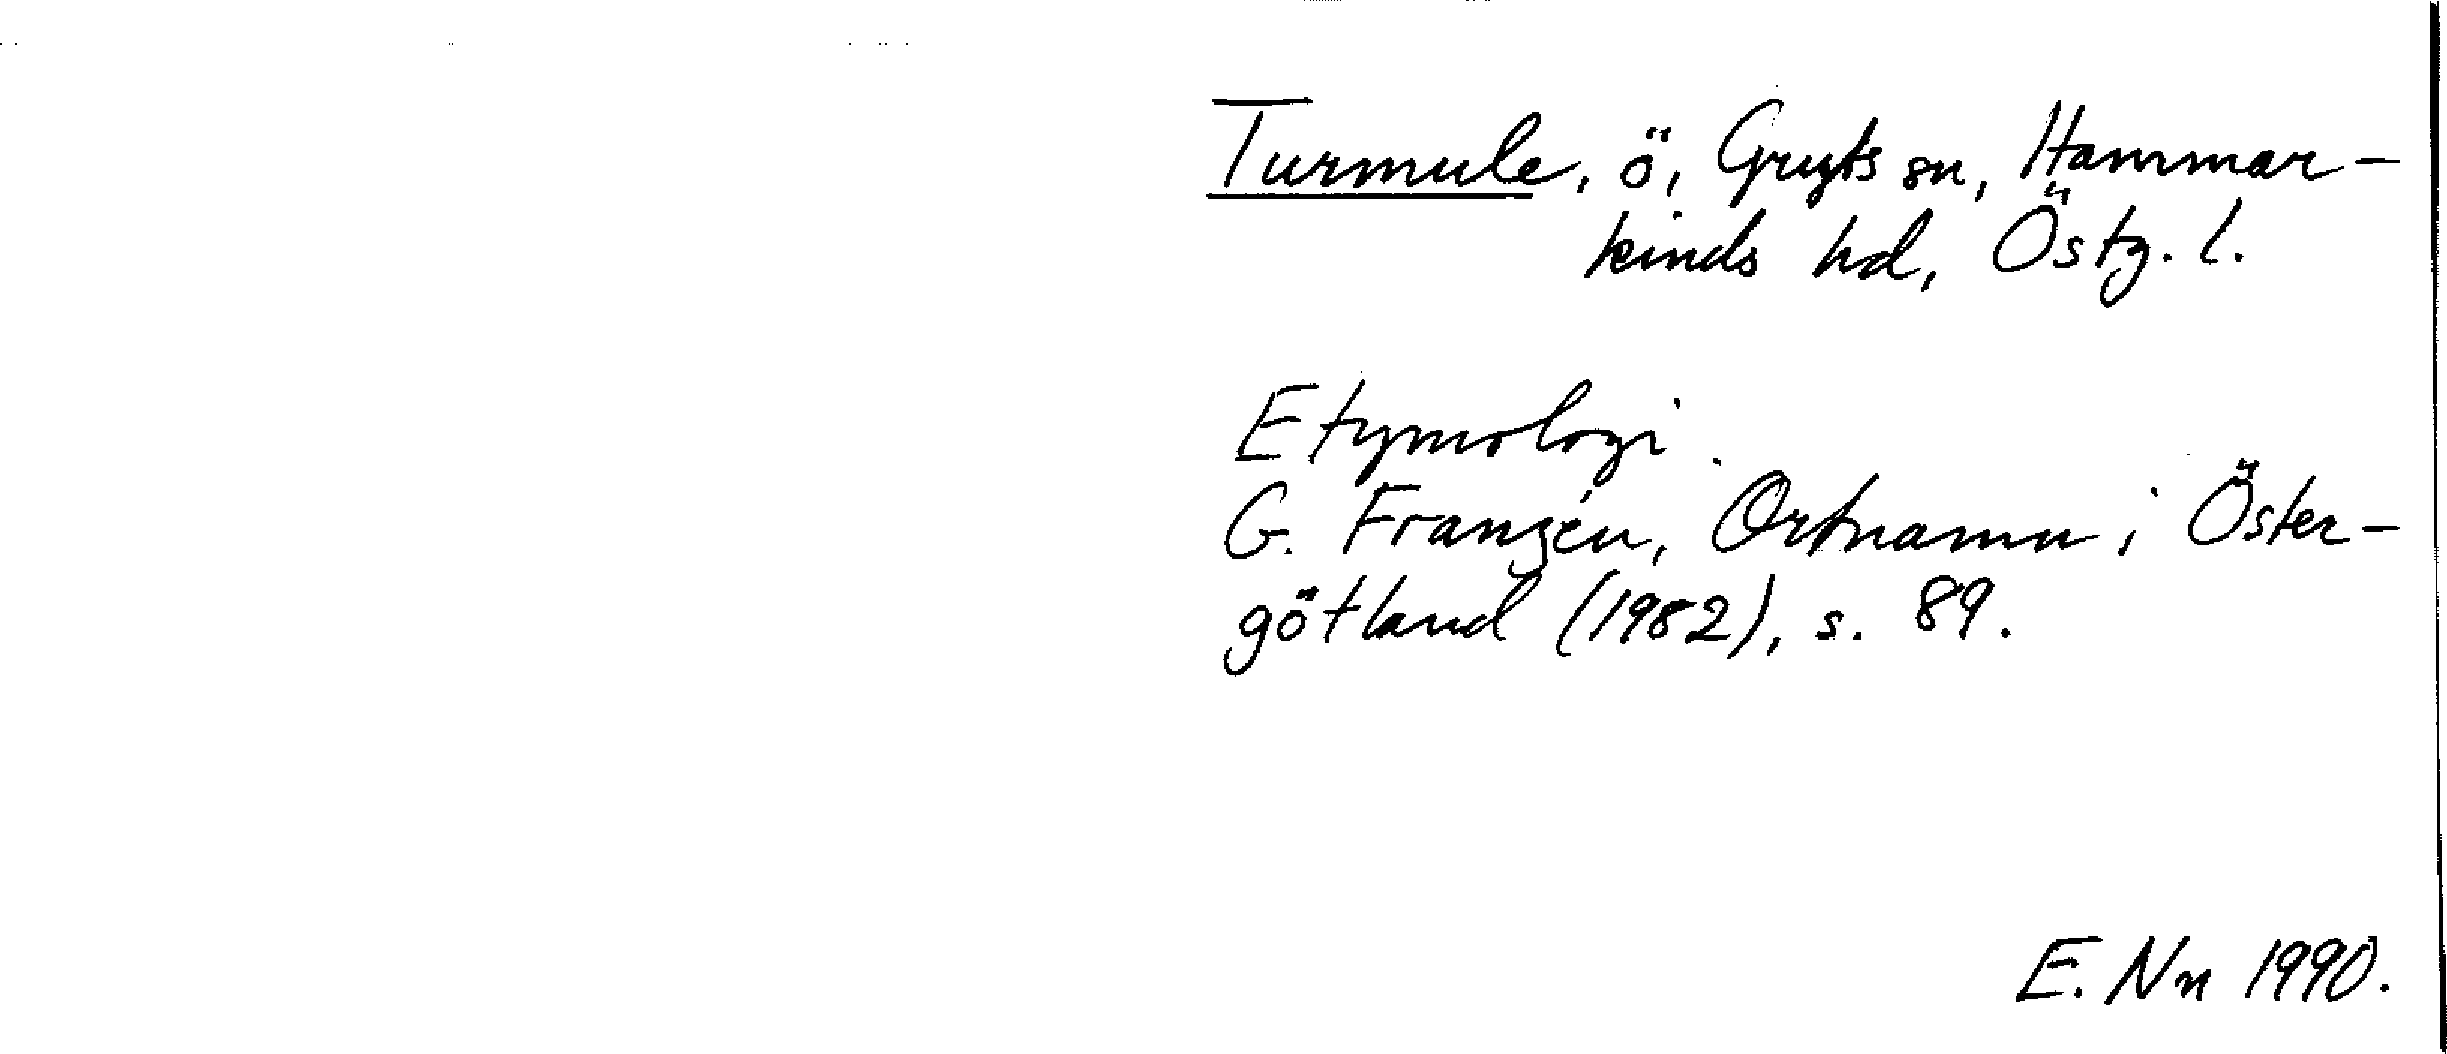 Turmule, ö, Gryts sn, Hammar-
kinds hd, Östg. l.
Etymologi.
G. Franzén, Ortnamn i Öster-
götland (1982), s. 89.
E. Nn 1990.